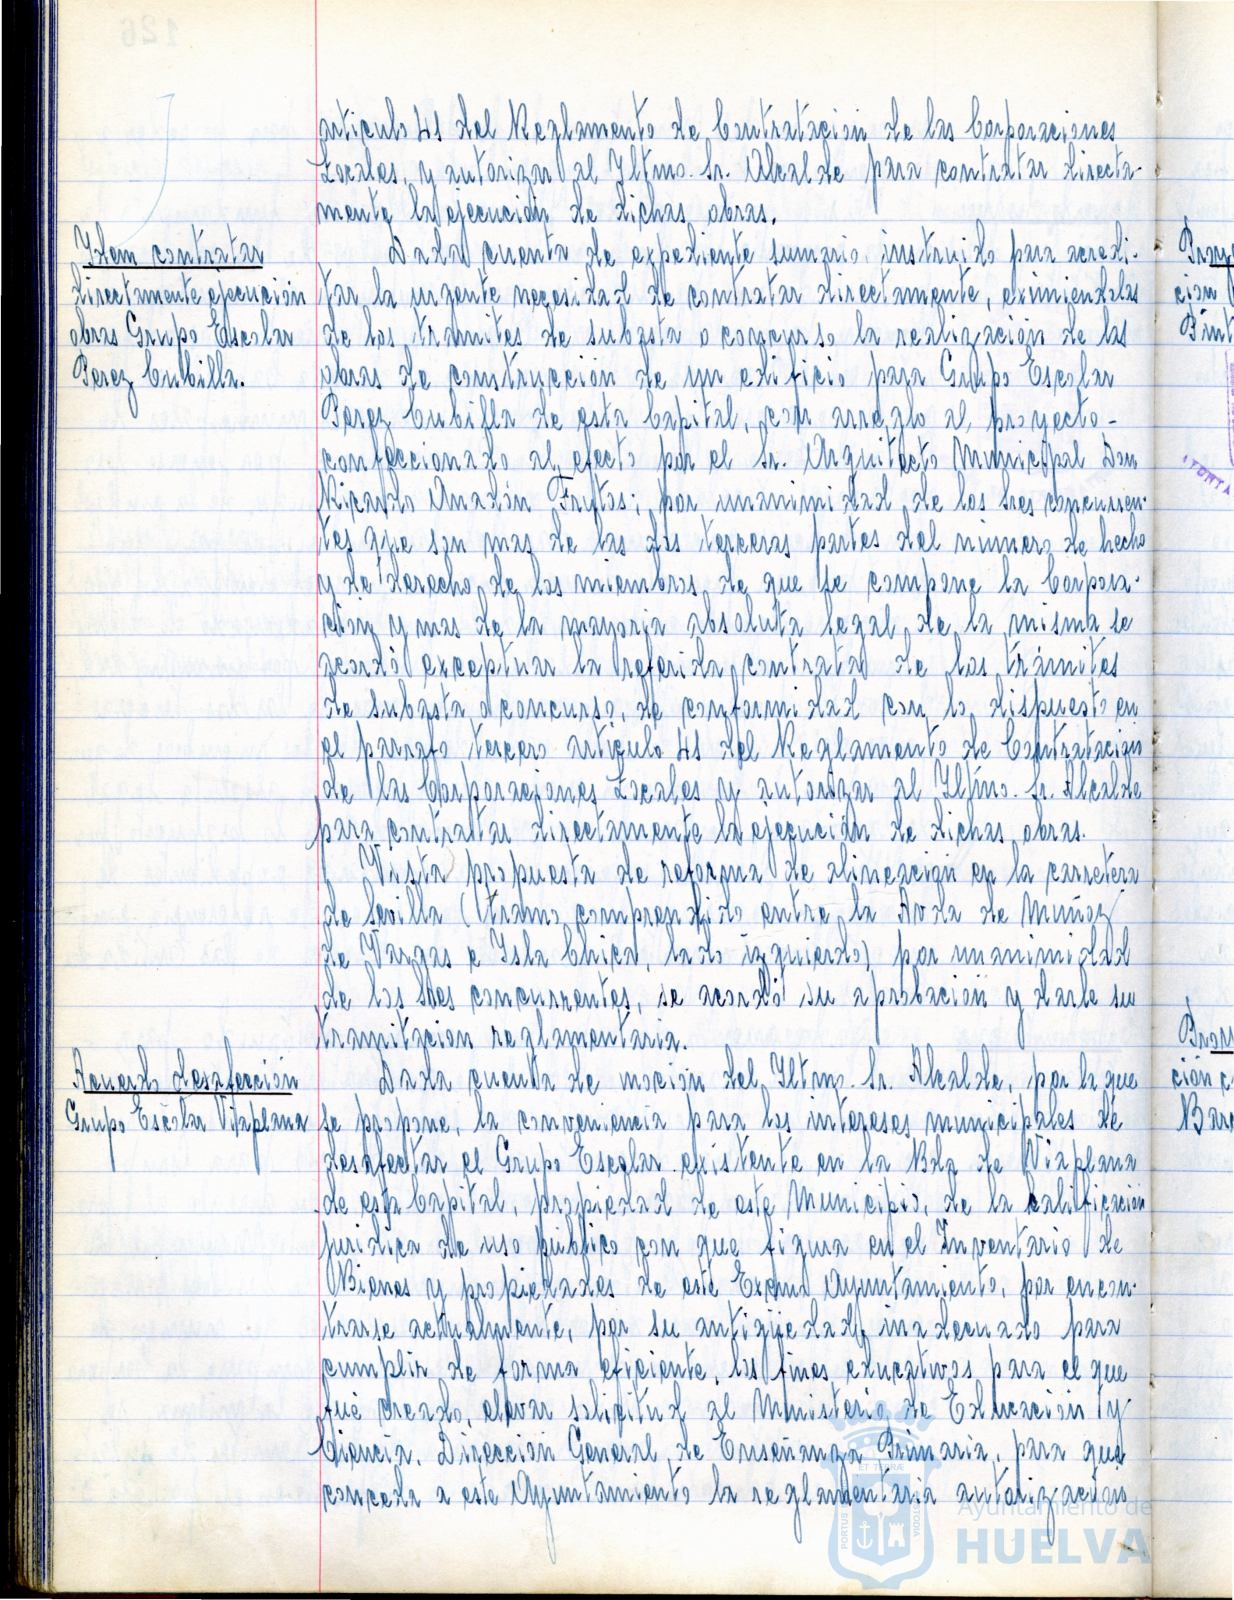 articulo 41 del Reglamento de Contratacion de las Corporaciones
Locales, y autorizar al Iltmo. Sr. Alcalde para contratar directa-
mente la ejecución de dichas obras.
Idem contratar
directamente ejecución
obras Grupo Escolar
Perez Cubilla.
Dada cuenta de expediente sumario instruido para acredi-
tar la urgente necesidad de contratar directamente, eximiendolas
de los tramites de subasta o concurso la realización de las
obras de construcción de un edificio para Grupo Escolar
Perez Cubilla de esta Capital, con arreglo al proyecto-
confeccionado al efecto por el Sr. Arquitecto Municipal Don
Ricardo Anadón Frutos; por unanimidad de los Sres concurren-
tes que son mas de las dos terceras partes del número de hecho
y de derecho de los miembros de que se compone la Corpora-
ción y mas de la mayoria absoluta legal de la misma se
acordó exceptuar la referida contrata de los trámites
de subasta o concurso, de conformidad con lo dispuesto en
el parrafo tercero articulo 41 del Reglamento de Contratacion
de las Corporaciones Locales y autorizar al Iltmo. Sr. Alcalde
para contratar directamente la ejecución de dichas obras.
Vista propuesta de reforma de alineación en la carretera
de Sevilla (tramo comprendido entre la Avda de Muñoz
de Vargas e Isla Chica, lado izquierdo) por unanimidad
de los Sres concurrentes, se acordó su aprobación y darle su
tramitacion reglamentaria.
Acuerdo desafección
Grupo Escolar Viaplana
Dada cuenta de moción del Iltmo. Sr. Alcalde, por la que
se propone, la conveniencia para los intereses municipales de
desafectar el Grupo Escolar existente en la Bda de Viaplana
de esta Capital, propiedad de este Municipio, de la calificación
juridica de uso público con que figura en el Inventario de
Bienes y propiedades de este Excmo Ayuntamiento, por encon-
trarse actualmente, por su antigüedad, inadecuado para
cumplir de forma eficiente, los fines educativos para el que
fué creado, elevar solicitud al Ministerio de Educación y
Ciencia, Dirección General de Enseñanza Primaria, para que
conceda a este Ayuntamiento la reglamentaria autorización
Ayuntamiento de
HUELVA